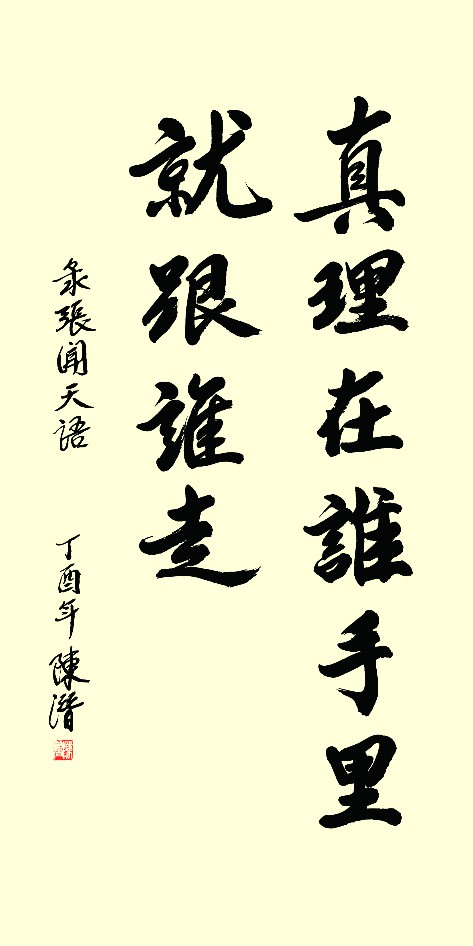 真理在誰手里
就跟誰走
录張闻天語
丁酉年 陳潛